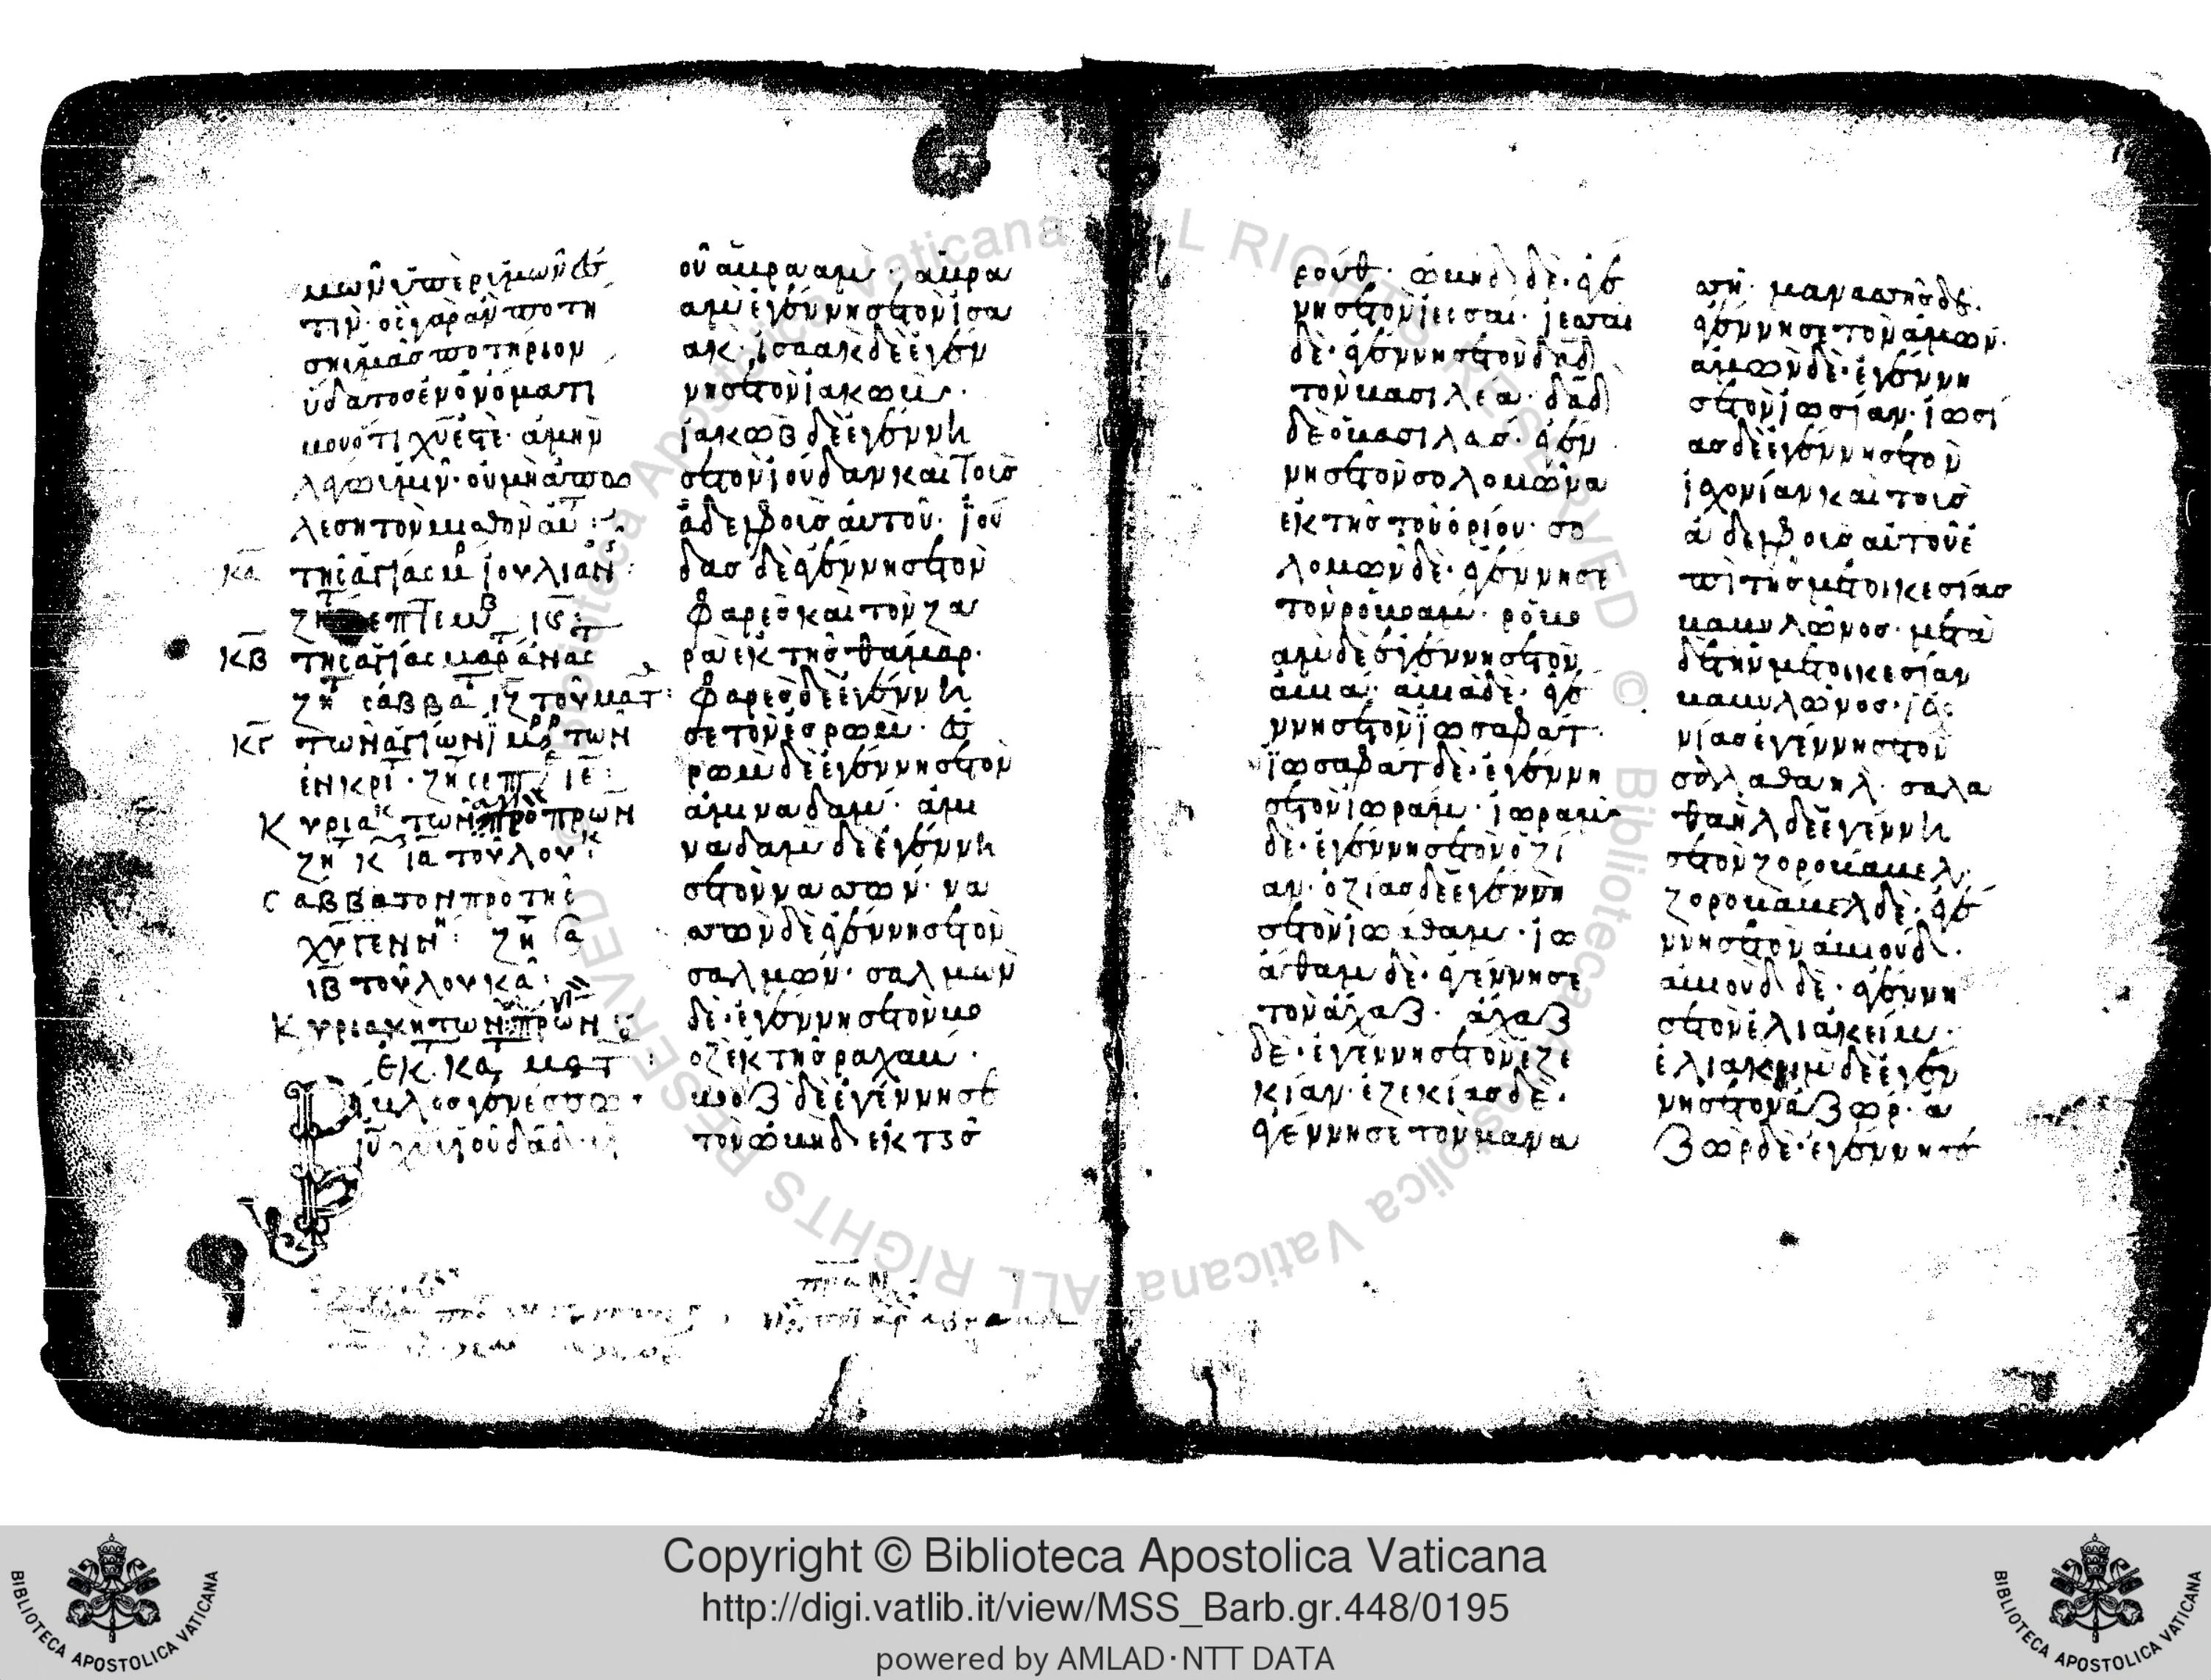 μων ὑπὲρ ἡμῶν ἐσ
τιν· ὃς γὰρ ἂν ποτη
ση ἡμᾶς ποτήριον
ὕδατος ἐν ὀνόματι
μου ὅτι χυ ἐστε· ἀμὴν
λέγω ἡμιν· οὐ μὴ ἀπο
λέση τὸν μισθὸν αυ
κα τῆς ἁγίας μ ἰουλιαν
ζη
κβ τῆς ἁγίας
ζη σαββα ιζ τοῦ ματ
κγ τῶν ἁγίων ι μρ τῶν
ἐν κρι · ζη σεπτ ιε
Κυρια τῶν προπρων
ζη κ ια τοῦ λουκ
σάββατον πρὸ τῆς
χυ γενν ζη σα
ιβ τοῦ λουκᾶ
Κυριακη τῶν πρων
ἐκ κα ματ
Βίβλος γενέσεως
ιυ χυ υιοῦ δαδ υι
οῦ ἀβρααμ· ἀβρα
ὰμ ἐγέννησε τὸν ἰσα
ακ· ἰσαὰκ δὲ ἐγέν
νησε τὸν ἰακώβ·
ἰακὼβ δὲ ἐγέννη
σε τὸν ἰούδαν καὶ τοὺς
ἀδελφοὺς αὐτοῦ· ἰού
δας δὲ ἐγέννησε τὸν
φαρὲς καὶ τὸν ζα
ρὰ ἐκ τῆς θάμαρ·
φαρὲς δὲ ἐγέννη
σε τὸν ἐσρώμ· ἐσ
ρὼμ δὲ ἐγέννησε τὸν
ἀμιναδαμ· ἀμι
ναδὰμ δὲ ἐγέννη
σε τὸν ναασών· να
ασὼν δὲ ἐγέννησε τὸν
σαλμών· σαλμὼν
δὲ· ἐγέννησε τὸν βο
ὸζ ἐκ τῆς ραχαβ·
βοὸζ δὲ ἐγέννησε
τὸν ὠβὴδ ἐκ τῆς
ρούθ· ὠβὴδ δὲ· ἐγέν
νησε τὸν ἰεσσαί· ἰεσσαὶ
δὲ· ἐγέννησε τὸν δαδ
τὸν βασιλέα· δαδ
δὲ ὁ βασιλεὺς· ἐγέν
νησε τὸν σολομῶνα
ἐκ τῆς τοῦ ὀρίου· σο
λομὼν δὲ· ἐγέννησε
τὸν ρόβοαμ· ρόβο
ὰμ δὲ ἐγέννησε τὸν
ἀβιά· ἀβιὰ δὲ· ἐγέ
ννησε τὸν ἰωσαφάτ·
ἰωσαφὰτ δὲ· ἐγέννη
σε τὸν ἰωράμ· ἰωρὰμ
δὲ· ἐγέννησε τὸν ὀζί
αν· ὀζίας δὲ ἐγέννη
σε τὸν ἰωάθαμ· ἰω
άθαμ δὲ· ἐγέννησε
τὸν ἀχαζ· ἀχαζ
δὲ· ἐγέννησε τὸν ἐζε
κίαν· ἐζεκίας δὲ·
ἐγέννησε τὸν μανα
σῆ· μανασσῆς δὲ·
ἐγέννησε τὸν ἀμών·
ἀμὼν δὲ· ἐγέννη
σε τὸν ἰωσίαν· ἰωσί
ας δὲ ἐγέννησε τὸν
ἰχονίαν καὶ τοὺς
ἀδελφοὺς αὐτοῦ ἐ
πὶ τῆς μετοικεσίας
βαβυλῶνος· μετὰ
δὲ τὴν μετοικεσίαν
βαβυλῶνος· ἰεχο
νίας ἐγέννησε τὸν
σαλαθαηλ· σαλα
θαὴλ δὲ ἐγέννη
σε τὸν ζοροβάβελ·
ζοροβάβελ δὲ· ἐγέ
ννησε τὸν ἀβιούδ·
ἀβιοὺδ δὲ· ἐγέννη
σε τὸν ἐλιάκειμ·
ἐλιακὴμ δὲ ἐγέν
νησε τὸν ἀζώρ· ἀ
ζὼρ δὲ· ἐγέννησε
Copyright © Biblioteca Apostolica Vaticana
http://digi.vatlib.it/view/MSS_Barb.gr.448/0195
powered by AMLAD·NTT DATA
BIBLIOTECA APOSTOLICA VATICANA
BIBLIOTECA APOSTOLICA VATICANA